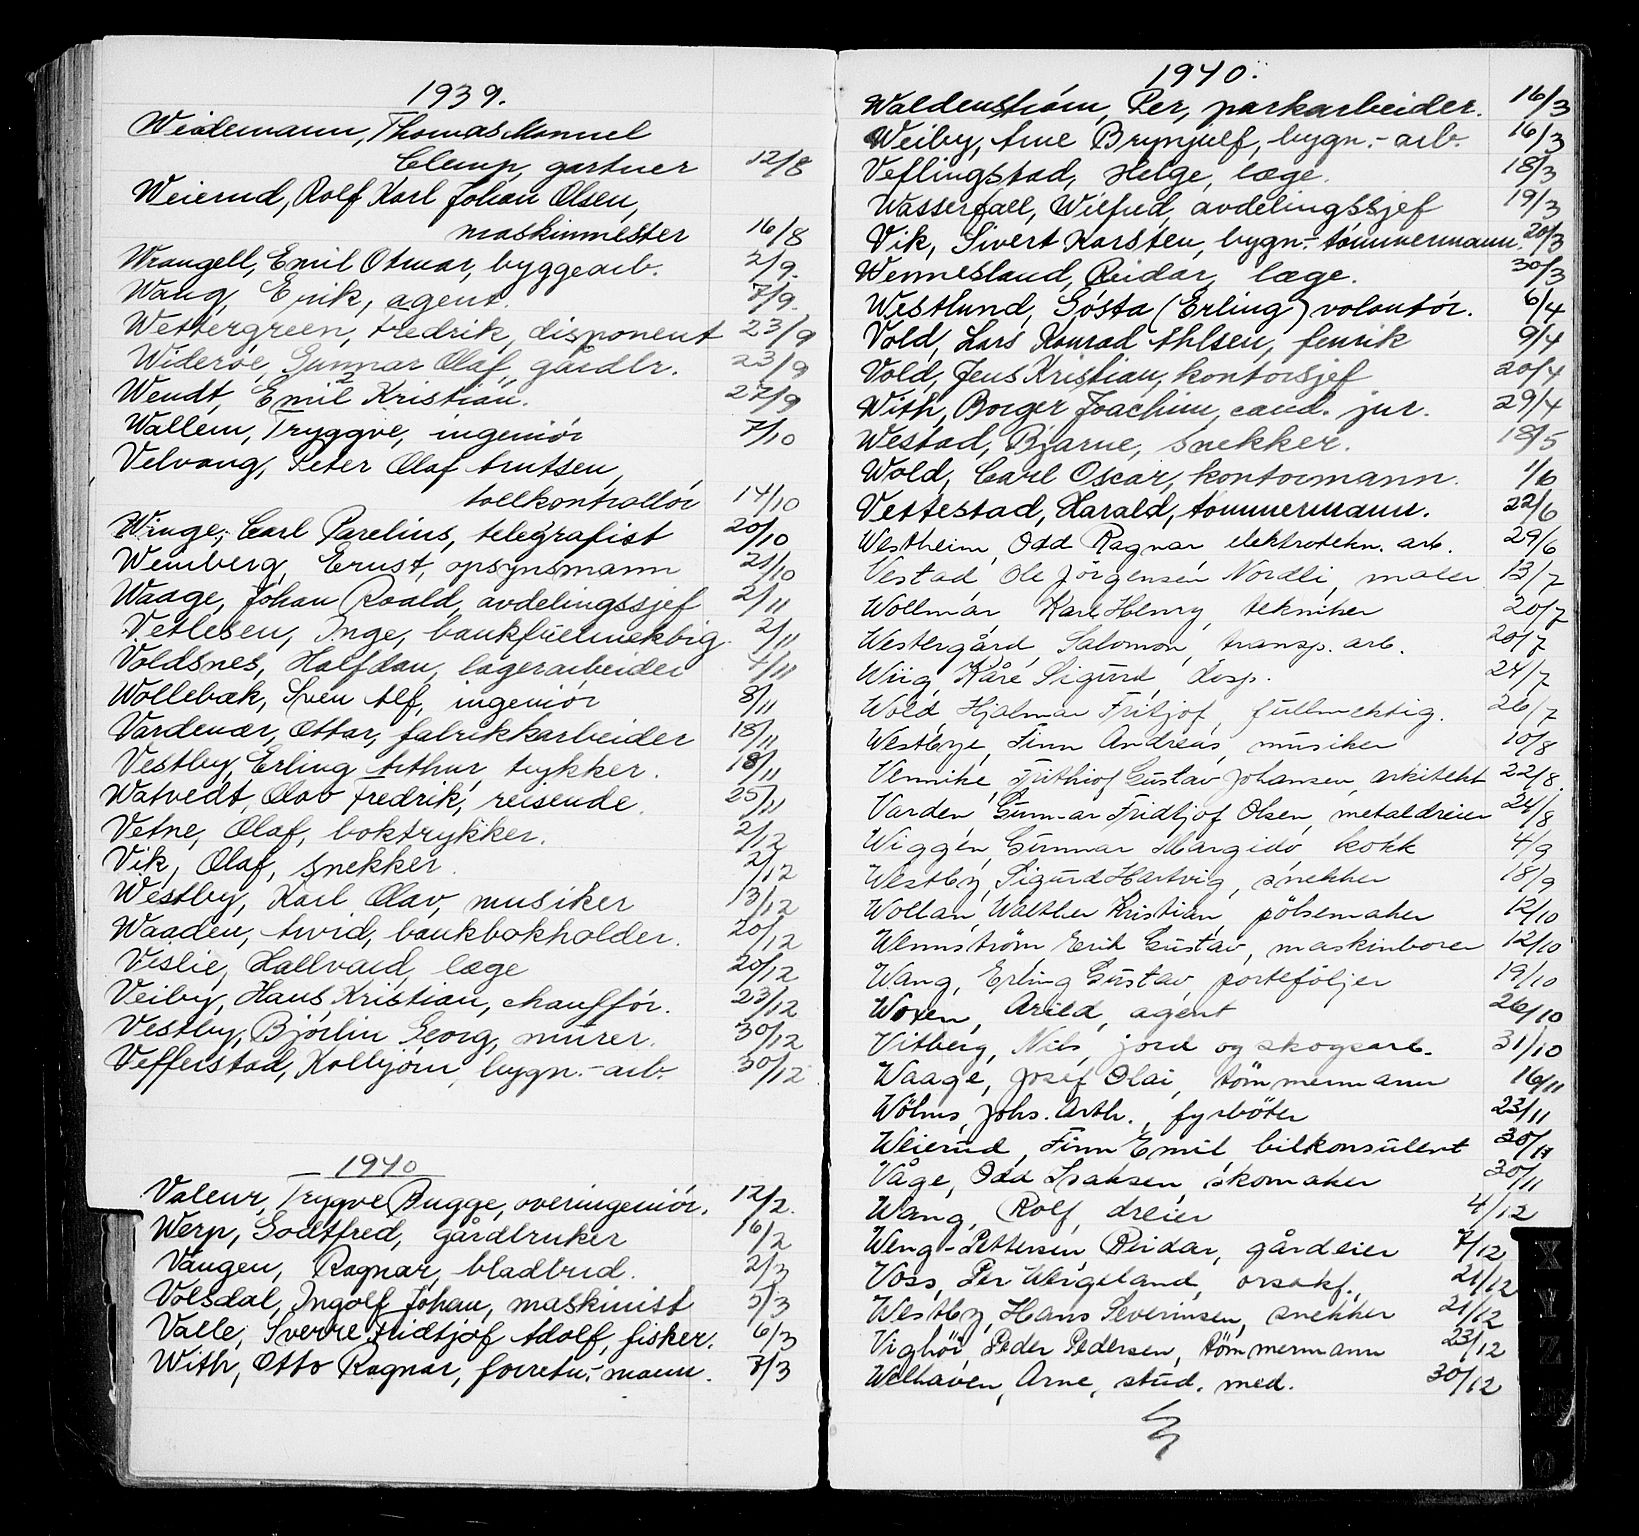 1939.
Weidemann, Thomas Manuel
Clemp, gartner 12/8
Weierud, Rolf Karl Johan Olsen,
maskinmester 16/8
Wrangell, Emil Otmar, byggearb. 2/9.
Wang, Erik, agent. 7/9.
Wettergreen, Fredrik, disponent 23/9
Widerøe, Gunnar Olaf, gårdbr. 23/9
Wendt, Emil Kristian. 27/9
Wallem, Tryggve, ingeniør 7/10
Velvang, Peter Olaf Arntsen,
tollkontrollør 14/10
Winge, Carl Parelius, telegrafist 20/10
Weinberg, Ernst, opsynsmann 21/10
Waage, Johan Roald, avdelingssjef 2/11
Vetlesen, Inge, bankfullmektig. 2/11
Voldsnes, Halfdan, lagerarbeider 4/11
Wollebæk, Sven Alf, ingeniør 8/11
Vardenær, Ottar, fabrikkarbeider 18/11
Vestby, Erling Arthur, trykker. 18/11
Watvedt, Olav Fredrik, reisende. 25/11
Vetne, Olaf, boktrykker. 2/12
Vik, Olaf, snekker. 2/12
Westby, Karl Olav, musiker 13/12
Waaden, Arvid, bankbokholder. 20/12
Veslie, Hallvard, læge 20/12
Veiby, Hans Kristian, chauffør. 23/12
Vestby, Bjørlin Georg, murer. 30/12
Vefferstad, Kolbjørn, bygn.-arb. 30/12
1940
Valeur, Trygve Bugge, overingeniør. 12/2.
Werp, Godtfred, gårdbruker 16/2
Vangen, Ragnar, bladbud. 2/3
Volsdal, Ingolf Johan, maskinist 5/3
Valle, Sverre Fridtjof Adolf, fisker. 6/3
With, Otto Ragnar, forretn.-mann. 7/3
1940.
Waldenstrøm, Per, parkarbeider. 16/3
Weiby, Arne Brynjulf, bygn.-arb. 16/3
Veflingstad, Helge, læge. 18/3
Wasserfall, Wilfred, avdelingssjef 19/3
Vik, Sivert Karsten, bygn.-tømmermann. 20/3
Wennesland, Reidar, læge. 30/3
Westlund, Gøsta (Erling) volontør. 6/4
Vold, Lars Konrad Ahlsen, fenrik 9/4
Vold, Jens Kristian, kontorsjef 20/4
With, Borger Joachim, cand. jur. 29/4
Westad, Bjarne, snekker. 18/5
Wold, Carl Oscar, kontormann. 1/6
Vettestad, Harald, tømmermann. 22/6
Westheim, Odd Ragnar elektrotekn. arb. 29/6
Vestad Ole Jörgensen Nordli, maler 13/7
Wollmar, Karl Henry, tekniker 20/7
Westergård, Salomon, transp. arb. 20/7
Wiig, Kåre Sigurd, disp. 24/7
Wold, Hjalmar Fritjof, fullmektig. 26/7
Westbye, Finn Andreas, musiker 10/8
Vennike, Frithiof Gustav Johansen, arkitekt 22/8.
Varden, Gunnar Fridtjof Olsen, metaldreier 24/8
Wiggen, Gunnar Margido kokk 4/9
Westby, Sigurd Hartvig, snekker 18/9
Wollan, Walther Kristian, pölsemaker 12/10
Wennström, Erik Gustav, maskinborer 12/10
Wang, Erling Gustav, porteföljer 19/10
Woxen, Arild, agent 26/10
Vitberg, Nils, jord og skogsarb. 31/10
Waage, Josef Olai, tömmermann 16/11
Wölms, Johs. Arth., fyrböter 23/11
Weierud, Finn Emil, bilkonsulent 30/11
Våge, Odd Isaksen, skomaker 30/11
Wang, Rolf, dreier 4/12
Weng-Pettersen Reidar, gårdeier 7/12
Voss, Per Wergeland, orsakf. 21/12
Westby, Hans Severinsen, snekker 21/12
Vighör, Peder Pedersen, tömmermann 23/12
Welhaven, Arne, stud. med. 30/12
X
Y
Z
Ø